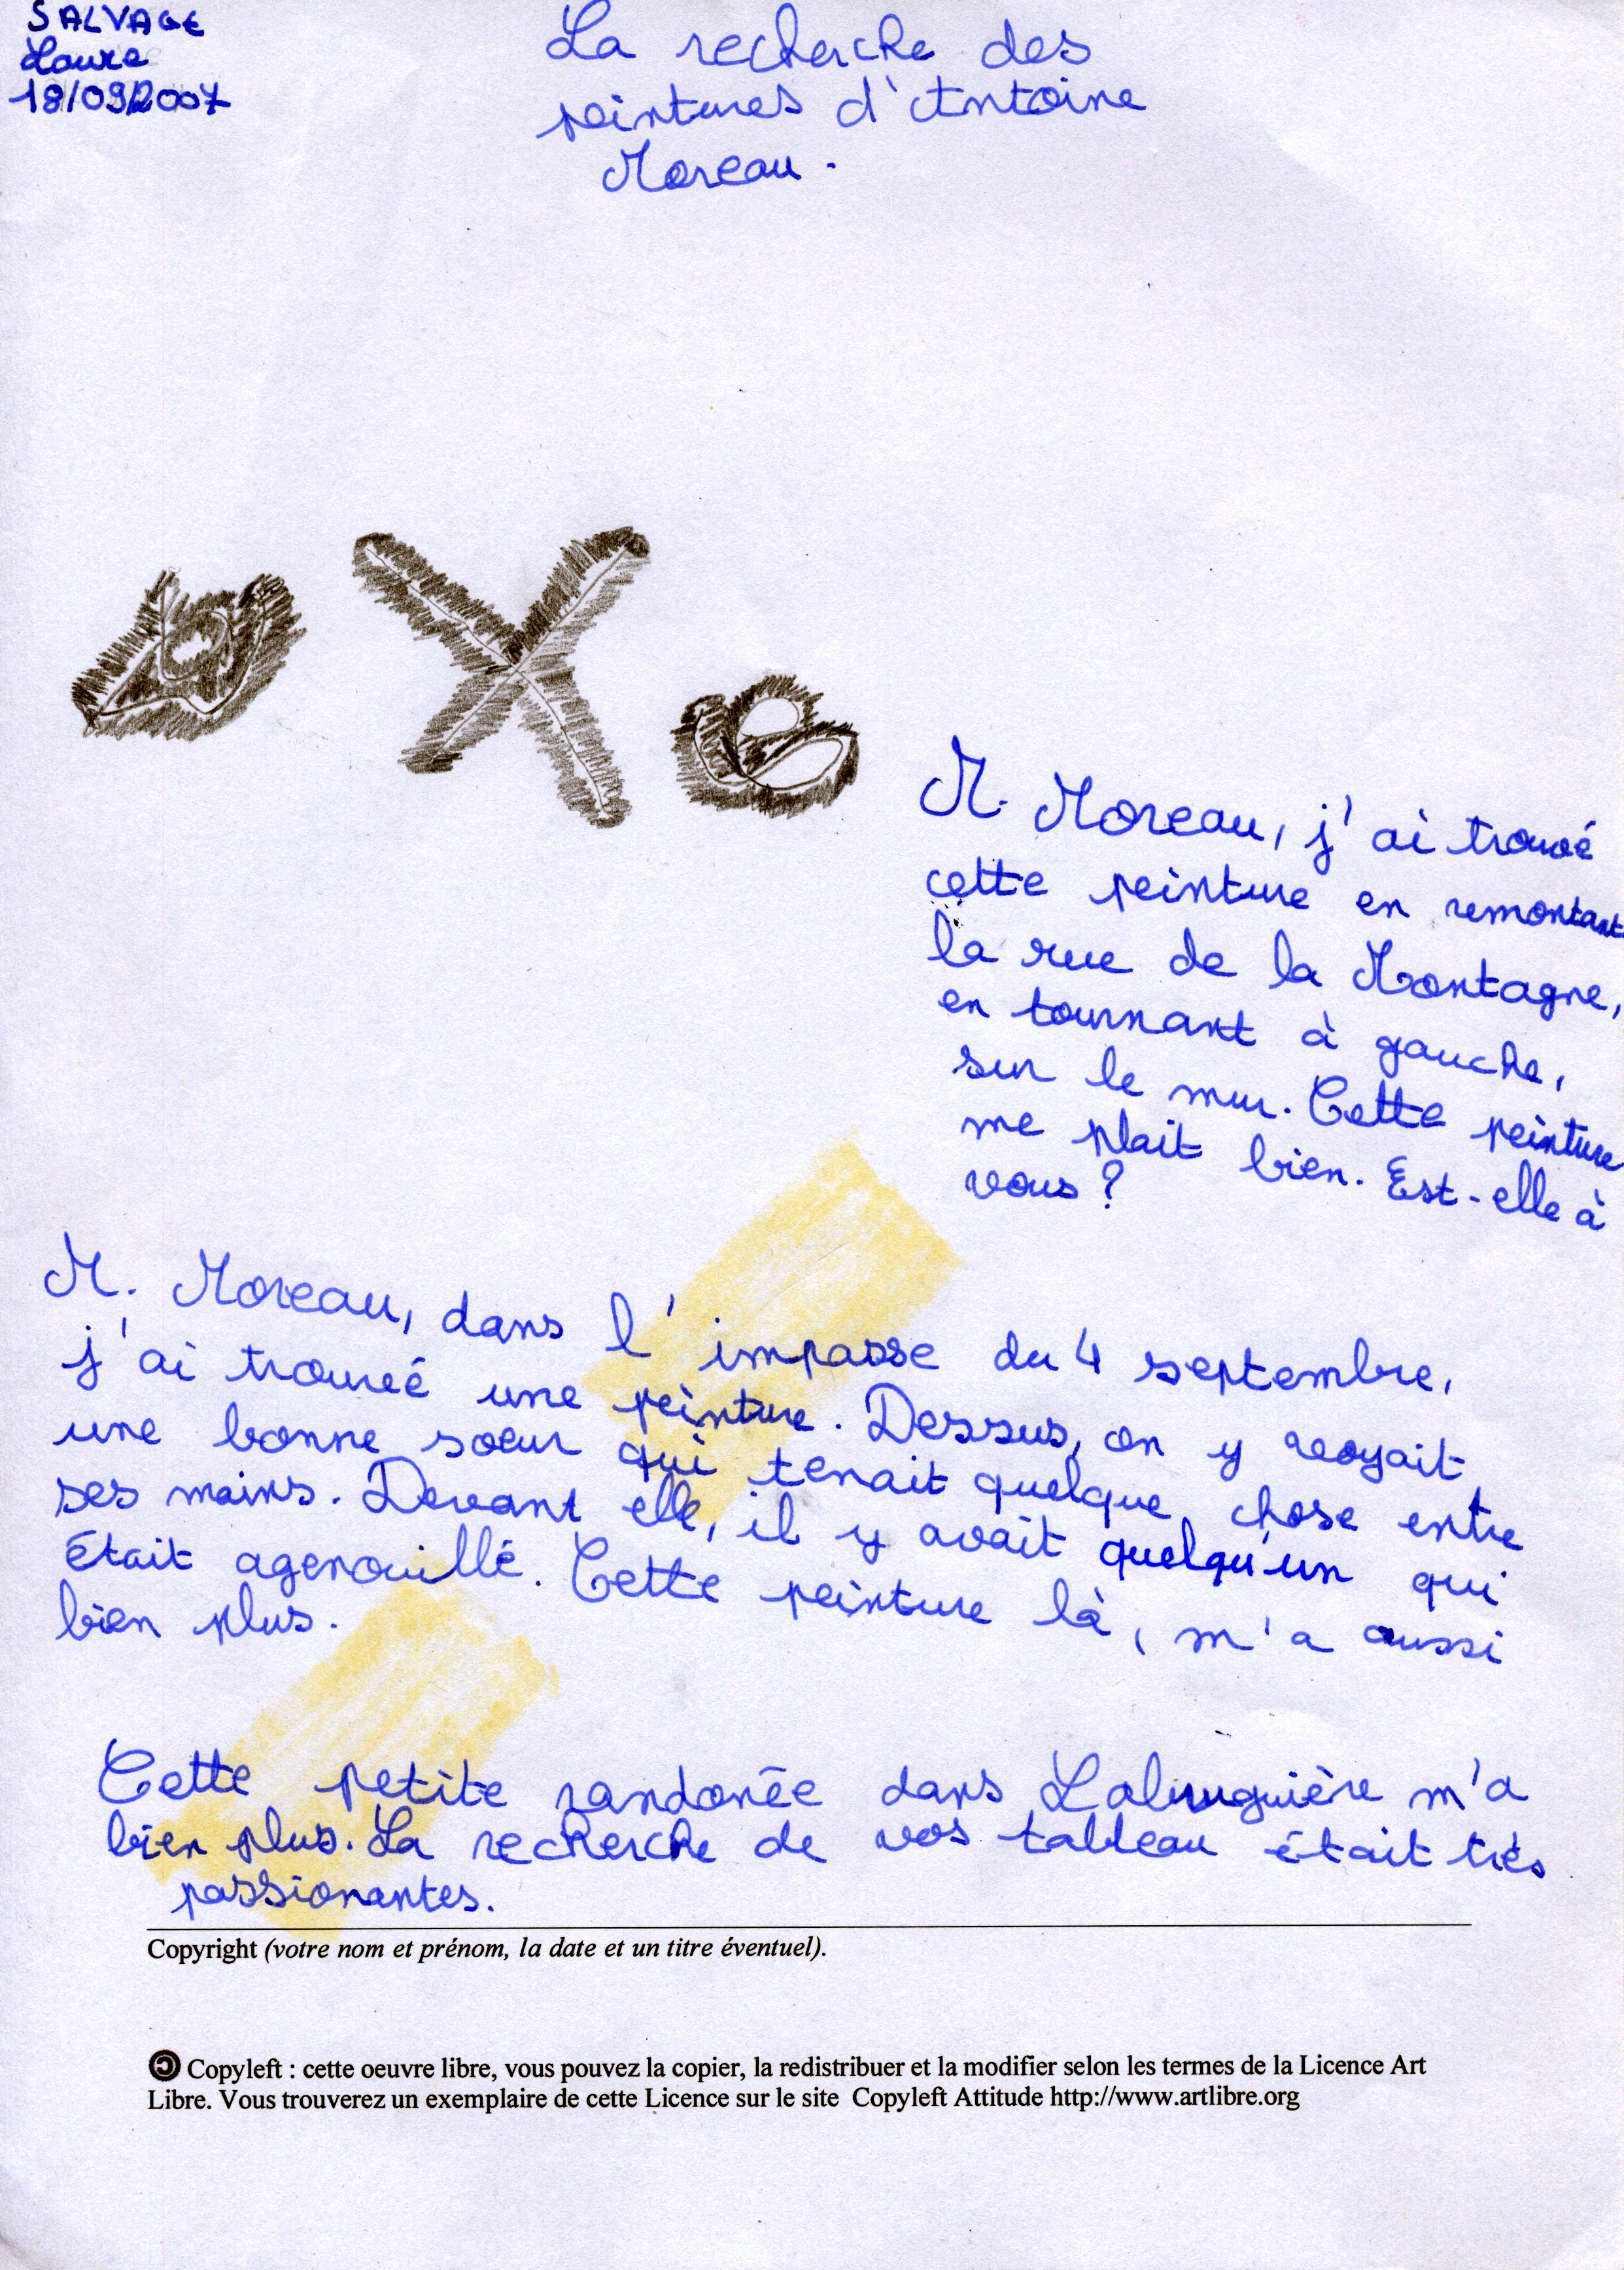 SALVAGE
Laure
18/09/2007
La recherche des
peintures d'Antoine
Moreau.
M. Moreau, j'ai trouvé
cette peinture en remontant
la rue de la Montagne,
en tournant à gauche,
sur le mur. Cette peinture
me plait bien. Est-elle à
vous ?
M. Moreau, dans l'impasse du 4 septembre,
j'ai trouvé une peinture. Dessus, on y voyait
une bonne soeur qui tenait quelque chose entre
ses mains. Devant elle, il y avait quelqu'un qui
était agenouillé. Cette peinture là, m'a aussi
bien plus.
Cette petite randonée dans Labruguière m'a
bien plus. La recherche de vos tableau était très
passionantes.
Copyright (votre nom et prénom, la date et un titre éventuel).
Copyleft : cette oeuvre libre, vous pouvez la copier, la redistribuer et la modifier selon les termes de la Licence Art
Libre. Vous trouverez un exemplaire de cette Licence sur le site Copyleft Attitude http://www.artlibre.org